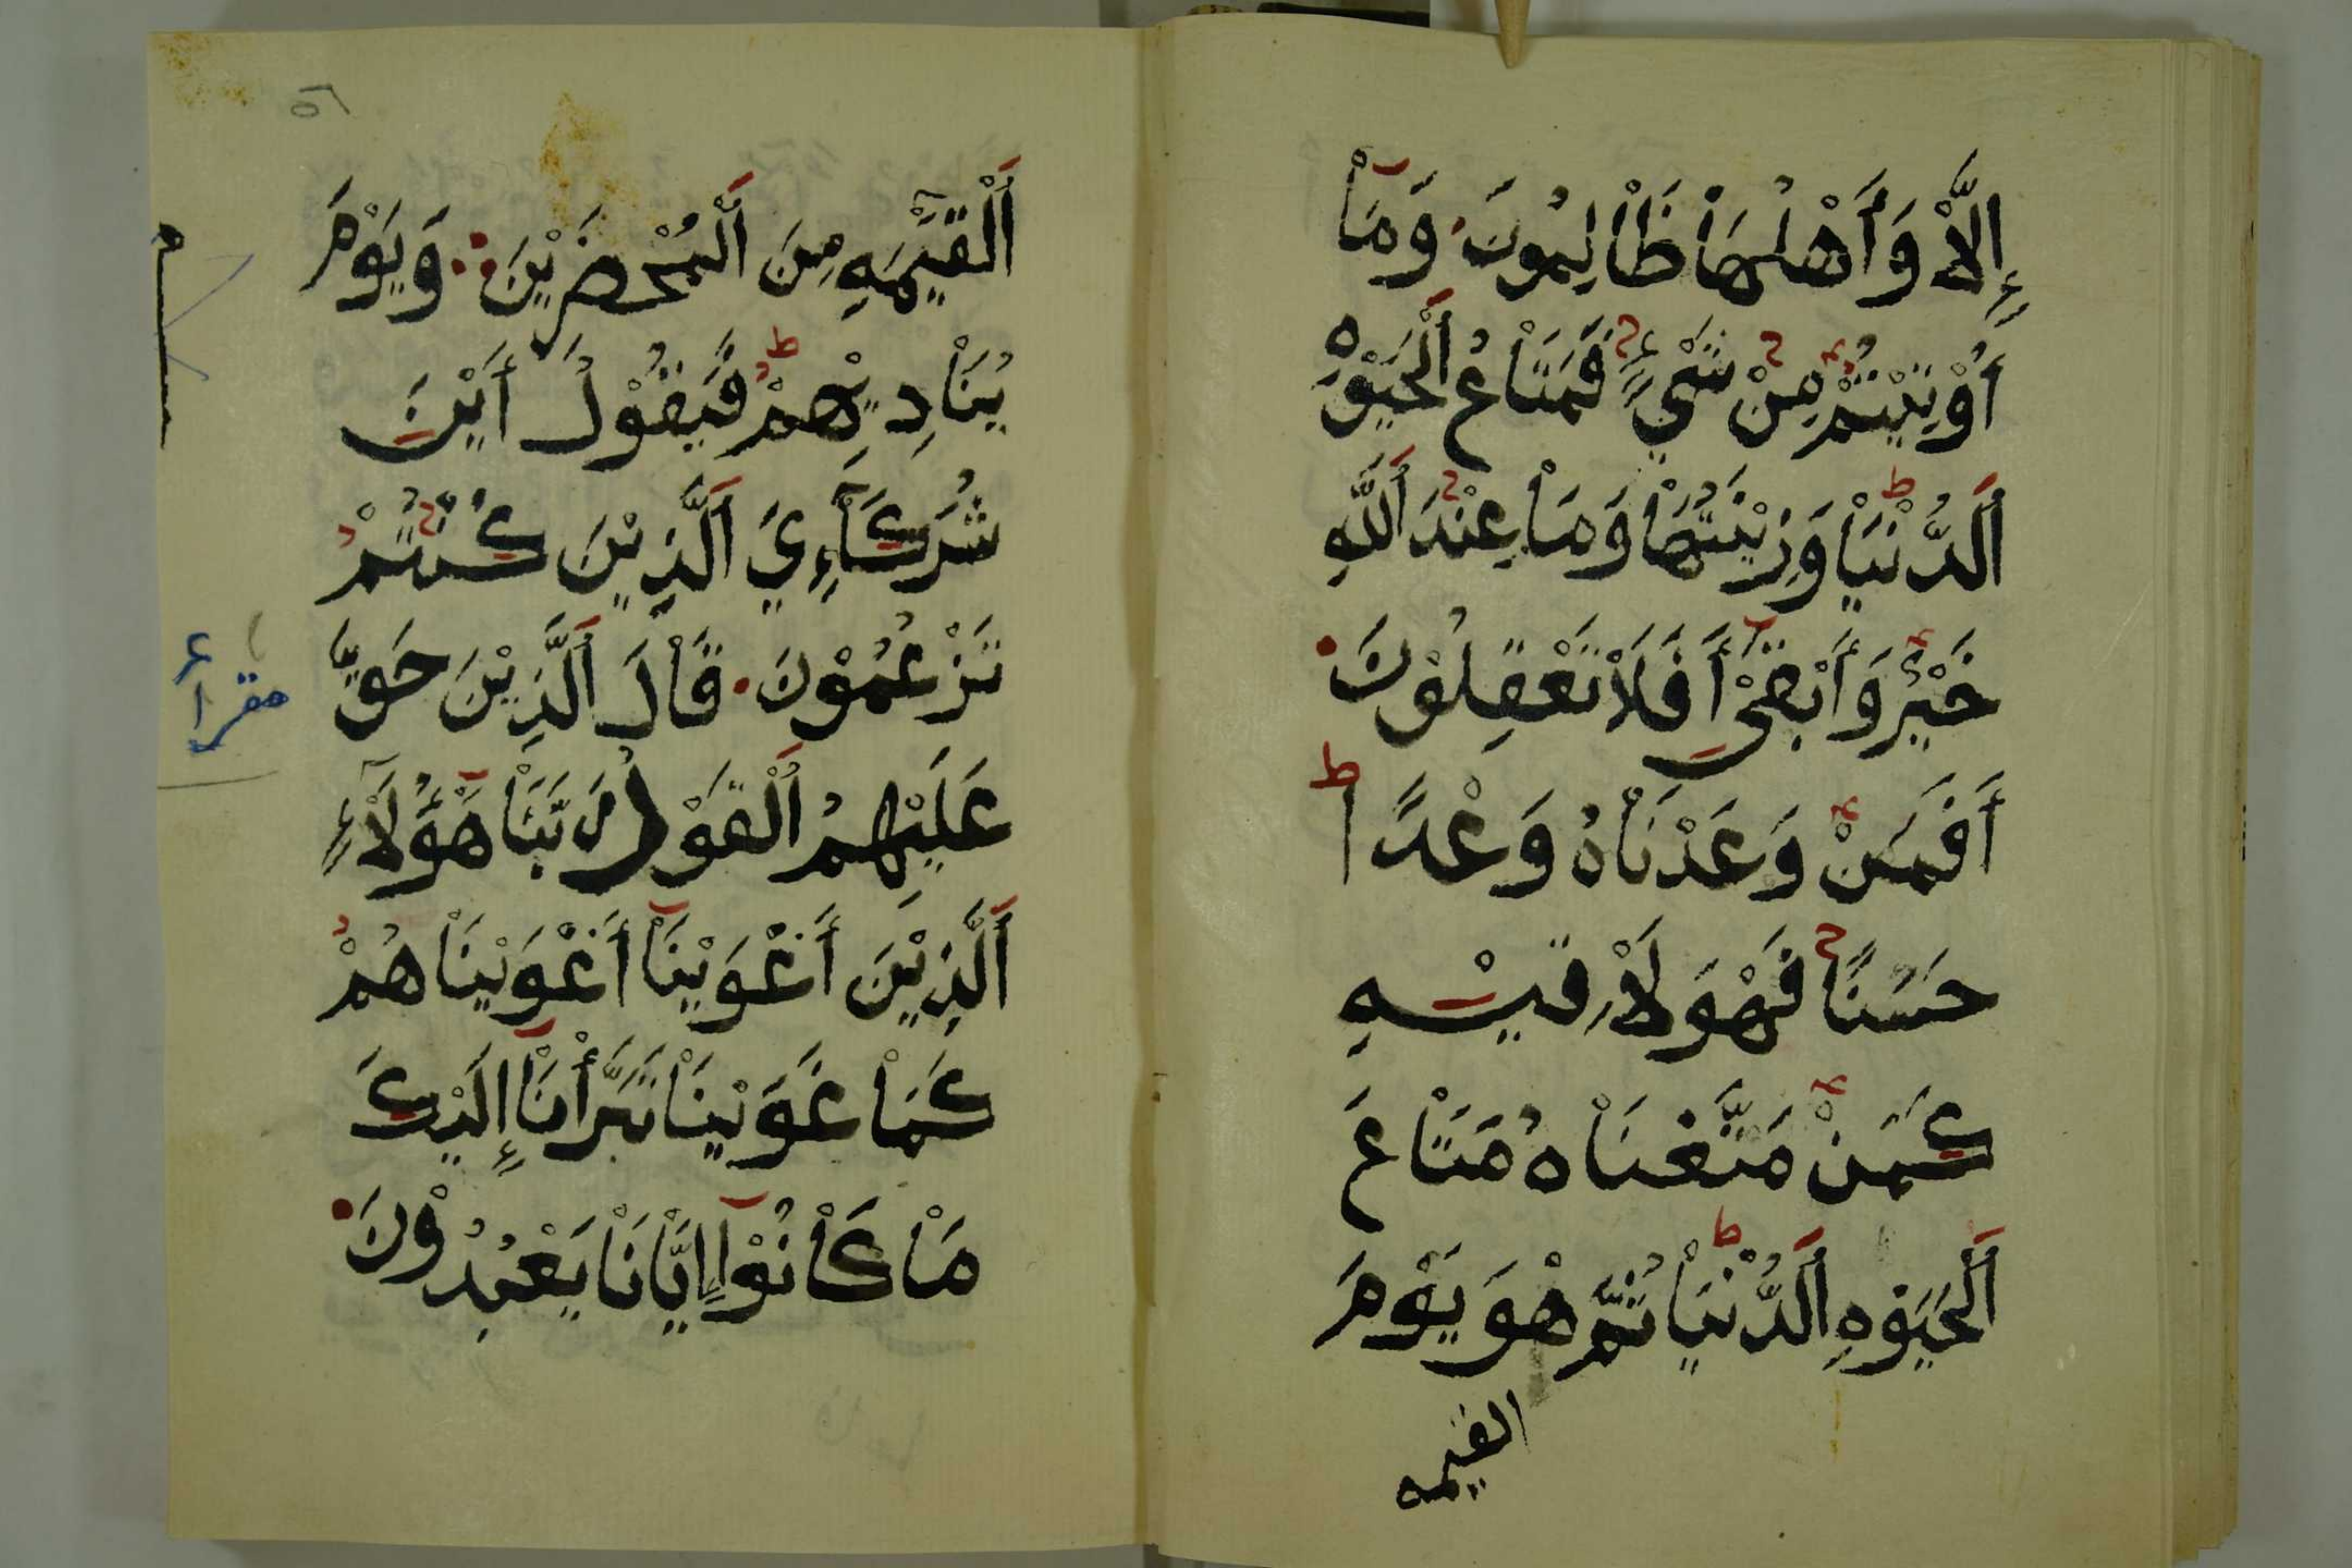 إِلَّاْ وَأَهْلُهَاْ ظَاْلِمُونَ وَمَاْ
أُوْتِيْتُمْ مِنْ شَيْءٍ فَمَتَاْعُ اَلْحَيَوْةِ
اَلدُّنْيَاْ وَزِيْنَتُهَاْ وَمَاْ عِنْدَ اَللَّهِ
خَيْرٌ وَأَبْقَىْ أَفَلَاْ تَعْقِلُوْنَ
أَفَمَنْ وَعَدْنَاْهُ وَعْدًا
حَسَنًا فَهْوَ لَاْقِيْهِ
كَمَنْ مَتَّعْنَاْهُ مَتَاْعَ
اَلْحَيَوْةِ اَلدُّنْيَاْ ثُمَّ هْوَ يَوْمَ
القيمه
٥٦
اَلْقِيَٰمَهِ مِنَ اَلْمُحْضَرِيْنَ وَيَوْمَ
يُنَاْدِيْهِمْ فَيَقُوْلُ أَيْنَ
شُرَكَآءِيَ اَلَّذِيْنَ كُنْتُمْ
تَزْعُمُوْنَ قَاْلَ اَلَّذِيْنَ حَقَّ
عَلَيْهِمُ اَلْقَوْلُ رَبَّنَاْ هَٰؤُلَآءِ
اَلَّذِيْنَ أَغْوَيْنَاْ أَغْوَيْنَاْهُمْ
كَمَاْ غَوَيْنَاْ تَبَرَّأْنَاْ إِلَيْكَ
مَاْ كَاْنُوْا إِيَّاْنَاْ يَعْبُدُوْنَ
مقرأ